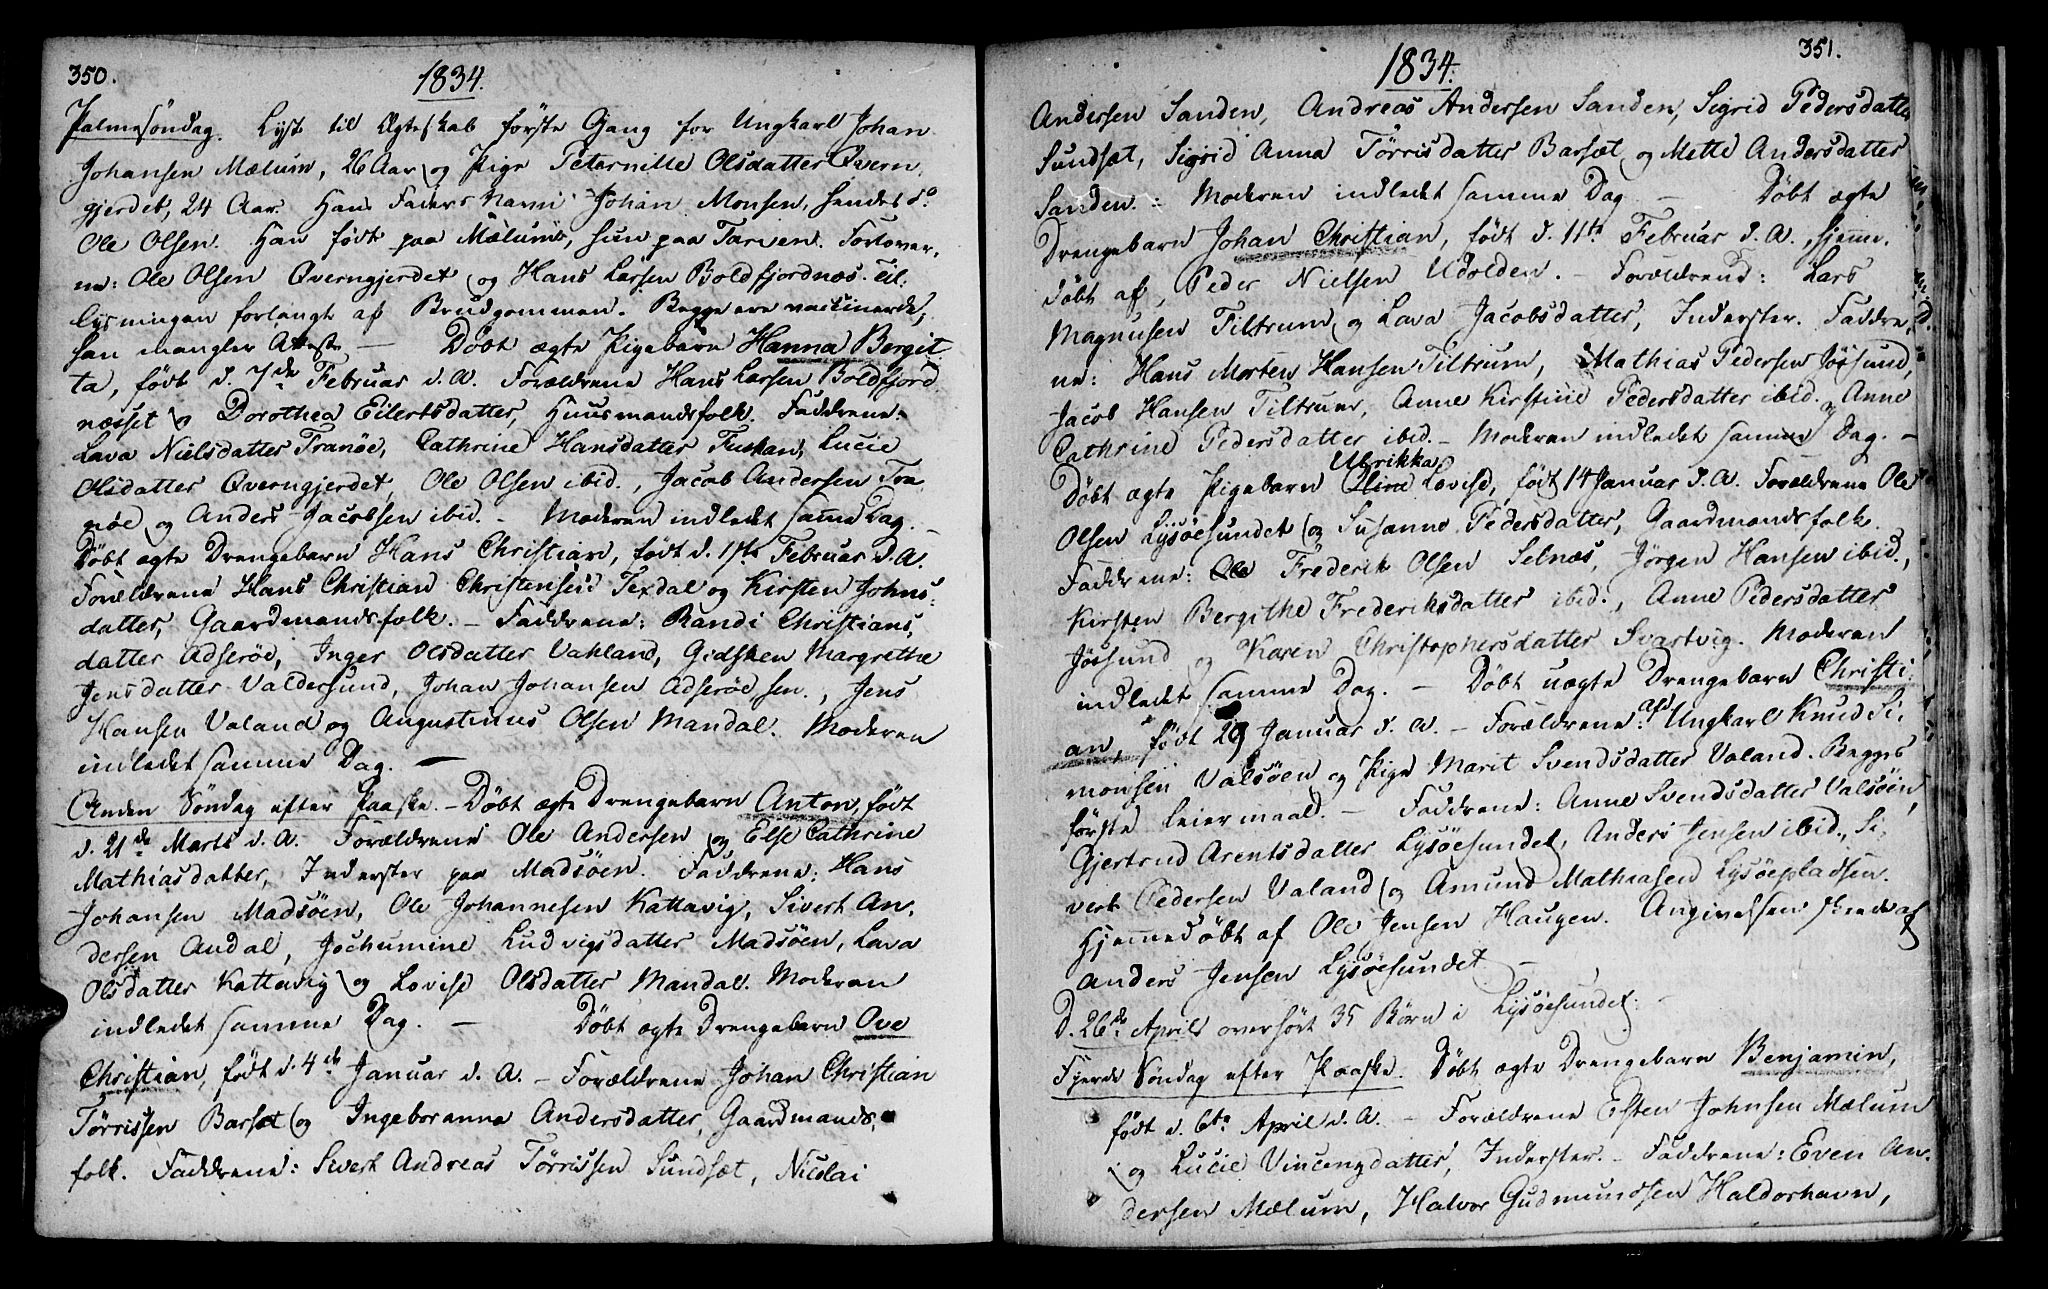 350.
1834.
Palmesöndag. Lyst til Ægteskab förste Gang for Ungkarl Johan
Johansen Mælum, 26 Aar og Pige Peternille Olsdatter Qvern
gjerdet, 24 Aar. Hans Faders Navn Johan Monsen, hendes do
Ole Olsen. Han födt paa Mælum, hun paa Tarven. Forlover,
ne: Ole Olsen Qverngjerdet og Hans Larsen Boldfjordnæs. Til,
lysningen forlangt af Brudgommen. Begge ere vaccinerede,
han mangler Attest — Döbt ægte Pigebarn Hanna Bergit
ta, födt d. 7de Februar d. A. Forældrene Hans Larsen Boldfjord
næsset og Dorothea Eilertsdatter, Huusmandsfolk. Faddrene:
Lava Nielsdatter Tranöe, Cathrine Hansdatter Fuskan, Lucie
Olsdatter Qverngjerdet, Ole Olsen ibid., Jacob Andersen Tra
nöe og Anders Jacobsen ibid. — Moderen indledet samme Dag. —
Döbt ægte Drengebarn Hans Christian, födt d. 1ste Februar d. A.
Forældrene Hans Christian Christensen Texdal og Kirsten Johns,
datter, Gaardmandsfolk. — Faddrene: Randi Christians,
datter Adseröe, Inger Olsdatter Valland, Gidsken Margrethe
Jensdatter Valdersund, Johan Johansen Adseröe sen., Jens
Hansen Valand og Augustinus Olsen Mandal. Moderen
indledet samme Dag. —
Anden Söndag efter Paaske. — Döbt ægte Drengebarn Anton, födt
d. 21de Marts d. A. Forældrene Ole Andersen og Else Cathrine
Mathiasdatter, Inderster paa Madsöen. Faddrene: Hans
Johansen Madsöen, Ole Johannesen Kattavig, Sivert An,
dersen Andal, Jochumine Ludvigsdatter Madsöen, Lava
Olsdatter Kattavig og Lovise Olsdatter Mandal. Moderen
indledet samme Dag. — Döbt ægte Drengebarn Ove
Christian, födt d. 4de Januar d. A. — Forældrene Johan Christian
Törrissen Barsæt og Ingeboranna Andersdatter, Gaardmands,
folk. Faddrene: Sivert Andreas Törrissen Sundsæt, Nicolai
351.
1834.
Andersen Sanden, Andreas Andersen Sanden, Sigrid Pedersdatter
Sundsæt, Sigrid Anna Törrisdatter Barsæt og Mette Andersdatter
Sanden. — Moderen indledet samme Dag — Döbt ægte
Drengebarn Johan Christian, födt d. 11te Februar d. A., hjem,
döbt af Peder Nielsen Udolden. — Forældrene: Lars
Magnusen Tiltrum og Lava Jacobsdatter, Inderster. Faddre,
ne: Hans Morten Hansen Tiltrum, Mathias Pedersen Jössund,
Jacob Hansen Tiltrum, Anne Kirstine Pedersdatter ibid. og Anne
Cathrine Pedersdatter ibid. — Moderen indledet samme Dag. —
Döbt ægte Pigebarn Ulrikka Lovise, födt 14 Januar d. A. Forældrene Ole
Olsen Lysöesundet og Susanne Pedersdatter, Gaardmandsfolk.
Faddrene: Ole Frederik Olsen Selnæs, Jörgen Hansen ibid.,
Kirsten Bergithe Frederiksdatter ibid., Anne Pedersdatter
Jössund og Karen Christophersdatter Svartvig. Moderen
indledet samme Dag. — Döbt uægte Drengebarn Christi,
an, födt 29 Januar d. A. — Forældrene: Ungkarl Knud Si,
monsen Valsöen og Pige Marit Svendsdatter Valand. Begges
förste Leiermaal. — Faddrene: Anne Svendsdatter Valsöen,
Gjertrud Arentsdatter Lysöesundet, Anders Jensen ibid., Si,
vert Pedersen Valand og Amund Mathiasen Lysöepladsen.
Hjemmedöbt af Ole Jensen Haugen. Angivelsen skeede af
Anders Jensen Lysöesundet —
D. 26de April overhört 35 Börn i Lysöesundet. —
Fjerde Söndag efter Paaske. Döbt ægte Drengebarn Benjamin,
födt d. 6te April d. A. — Forældrene Esten Johnsen Mælum
og Lucie Vincenzdatter, Inderster. — Faddrene: Even An,
dersen Mælum, Halvor Gudmundsen Haldorhavn,